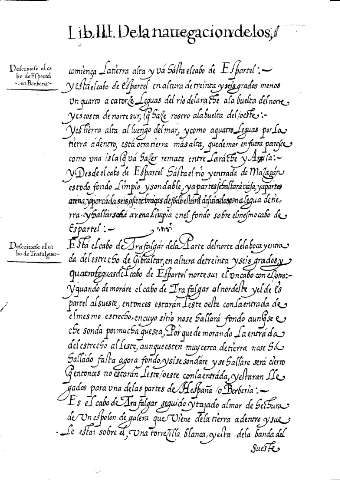 Lib. III. De la nauegacion de los,
Descripcio del ca
bo de Espartel
en Berberia
comiença La tierra alta y va hasta el cabo de Espartel:~
y esta el cabo de Espartel en altura de treinta y seis grados menos
un quarto a catorze leguas del rio de larache a la buelta del norte
y es costa de norte sur, q haze rostro a la buelta del oeste:~
y es tierra alta al luengo del mar, y como a quatro leguas por la
tierra adentro, esta otra tierra mas alta, que de mar en fuera pareçe
como una isla q va hazer remate entre Larache y Arzila:~
y Desde el cabo de Espartel hasta el rio y entrada de
es todo fondo limpio y sondable, y a partes
tierra y hallarse ha arena limpia en el fondo sobre el mesmo cabo de
Espartel:~
Descripcio del ca
bo de Trafalgar
Esta el cabo de Trafalgar de la Parte del norte de la boca y entra
da del estrecho de Gibraltar, en altura de treinta y seis grados, y
quatro leguas del cabo de Espartel norte sur el un cabo con el otro:
y quando demorare el cabo de Trafalgar al nordeste y el de Es
partel al sueste, entonces estaran leste oeste con la entrada de
el mesmo estrecho, en cuyo sitio no se hallara fondo aunq se e
che sonda por mucha que sea, Por que demorando La entrada
del estrecho al Leste, aunque esten muy cerca de tierra no se ha
hallado hasta agora fondo, y si se sondare y se hallare sera cierto
q entonces no estaran Leste oeste con la entrada, y estaran lle
gados para una de las partes de Hespaña o Berberia:
Es el cabo de Trafalgar seguido y tajado al mar de hechura
de un espolon de galera que viene de la tierra adentro y sue
le estar sobre el una torrezilla blanca, y esta de la banda del
sueste